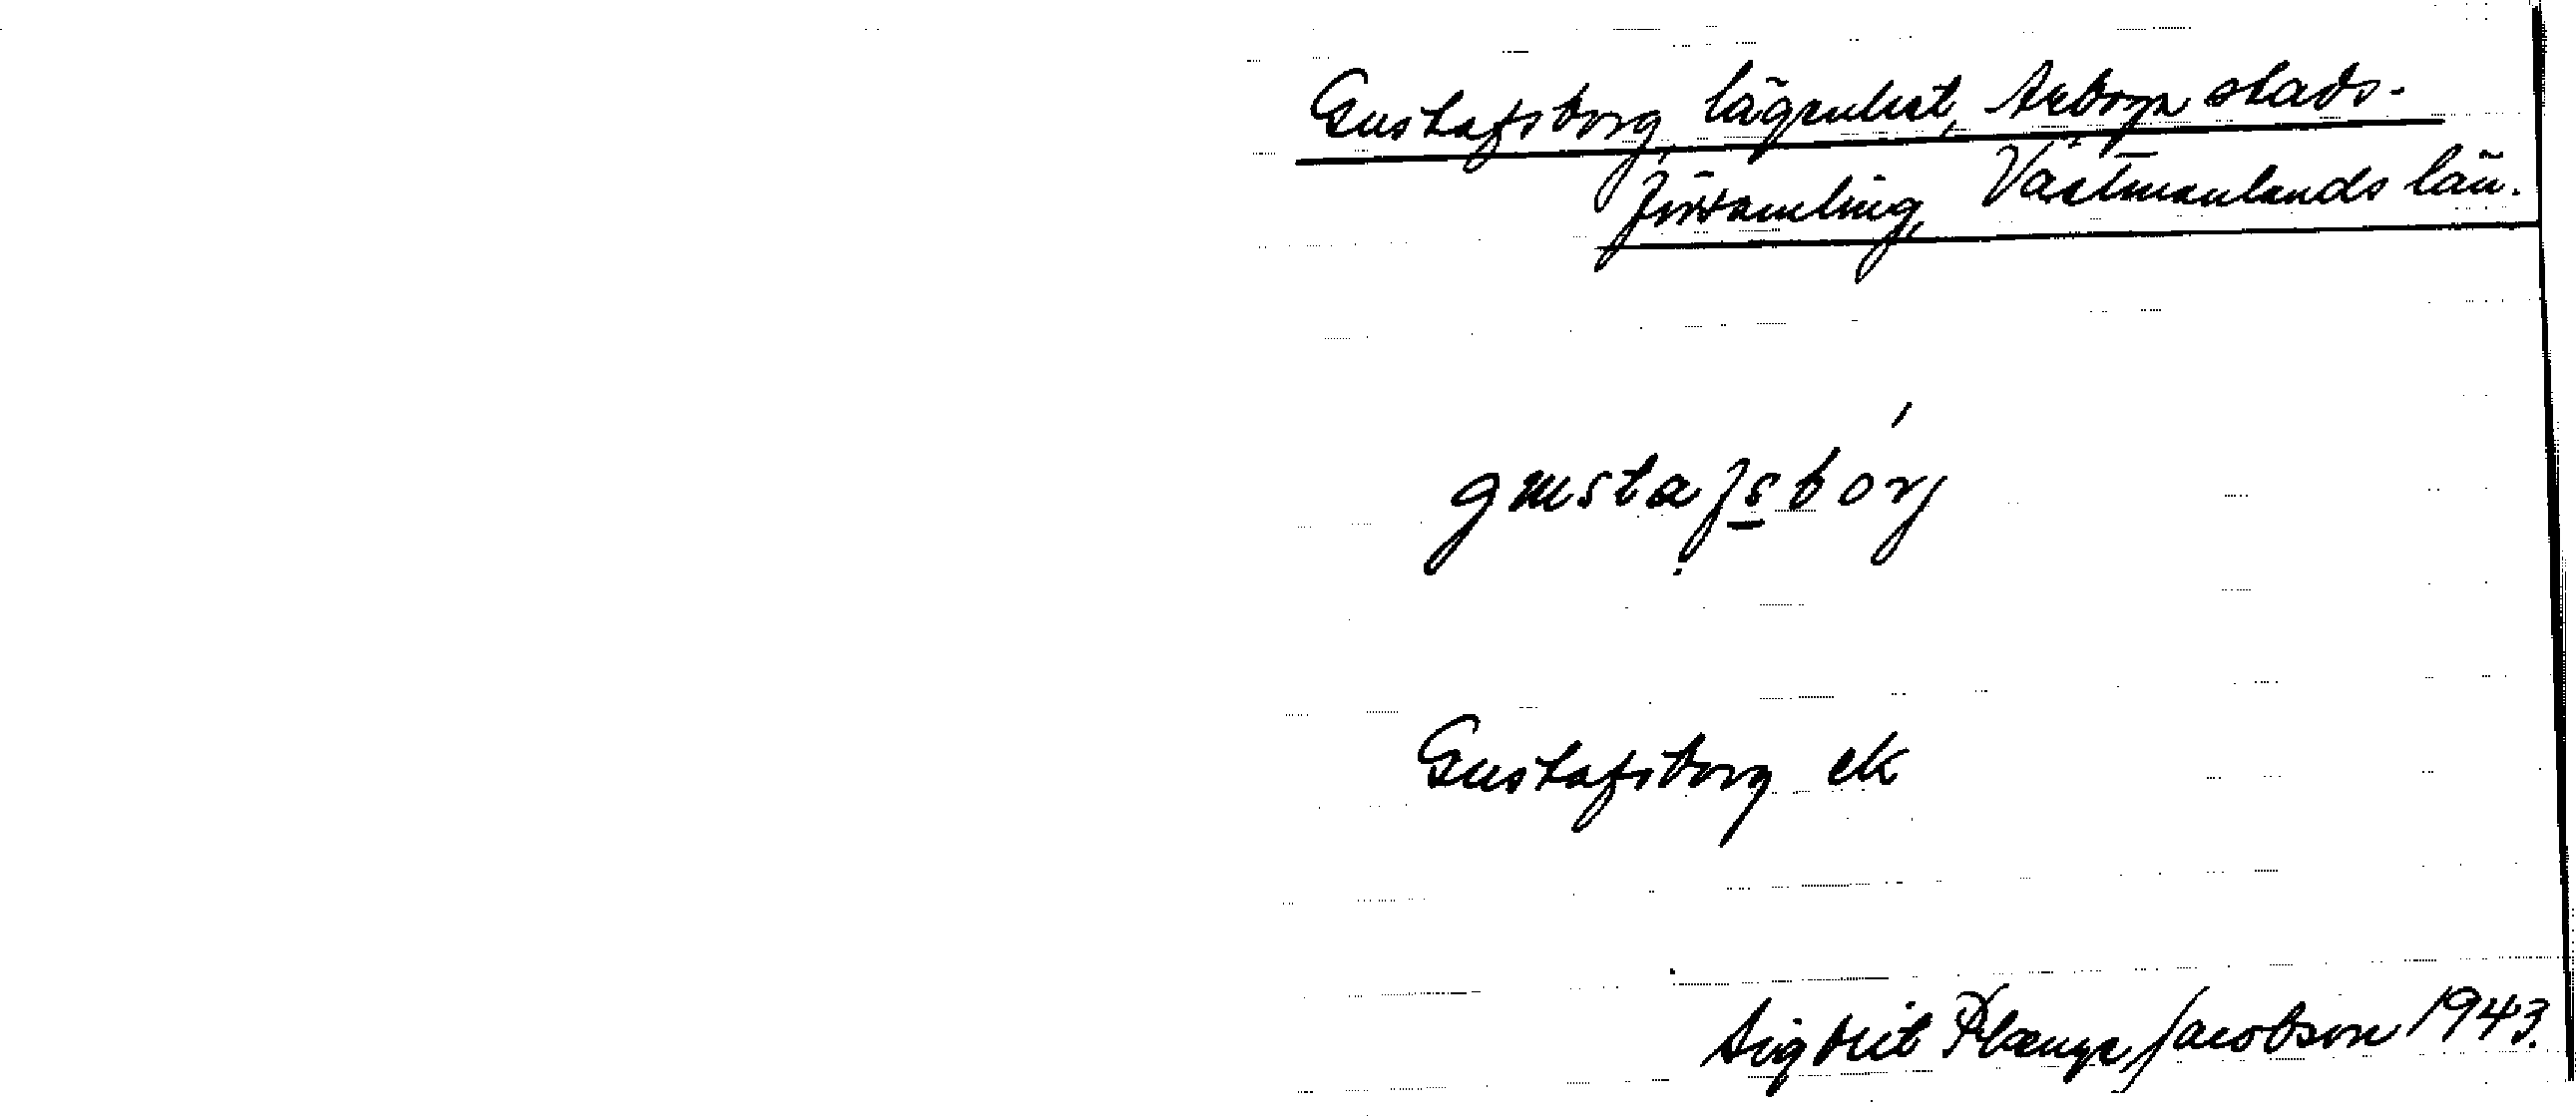 Gustafsborg, lägenhet, Arboga stads-
församling, Västmanlands län.
gustafsbórj
Gustafsborg ek
Sigbrit Plænge Jacobson 1943.